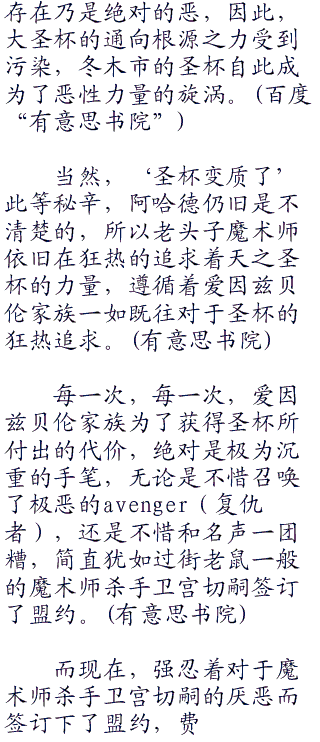 存在乃是绝对的恶，因此，
大圣杯的通向根源之力受到
污染，冬木市的圣杯自此成
为了恶性力量的旋涡。(百度
“有意思书院”)
当然，‘圣杯变质了’
此等秘辛，阿哈德仍旧是不
清楚的，所以老头子魔术师
依旧在狂热的追求着天之圣
杯的力量，遵循着爱因兹贝
伦家族一如既往对于圣杯的
狂热追求。(有意思书院)
每一次，每一次，爱因
兹贝伦家族为了获得圣杯所
付出的代价，绝对是极为沉
重的手笔，无论是不惜召唤
了极恶的avenger（复仇
者），还是不惜和名声一团
糟，简直犹如过街老鼠一般
的魔术师杀手卫宫切嗣签订
了盟约。(有意思书院)
而现在，强忍着对于魔
术师杀手卫宫切嗣的厌恶而
签订下了盟约，费